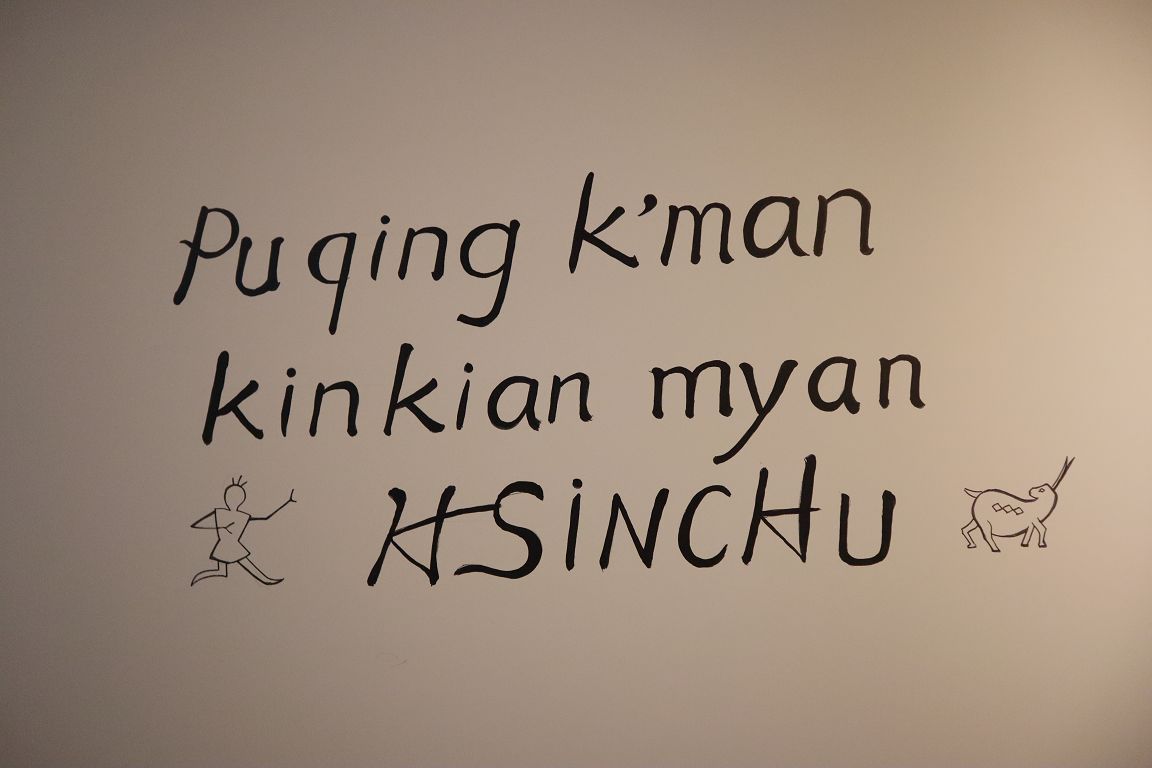 Puqing k'man
kinkian myan
HSiNCHU